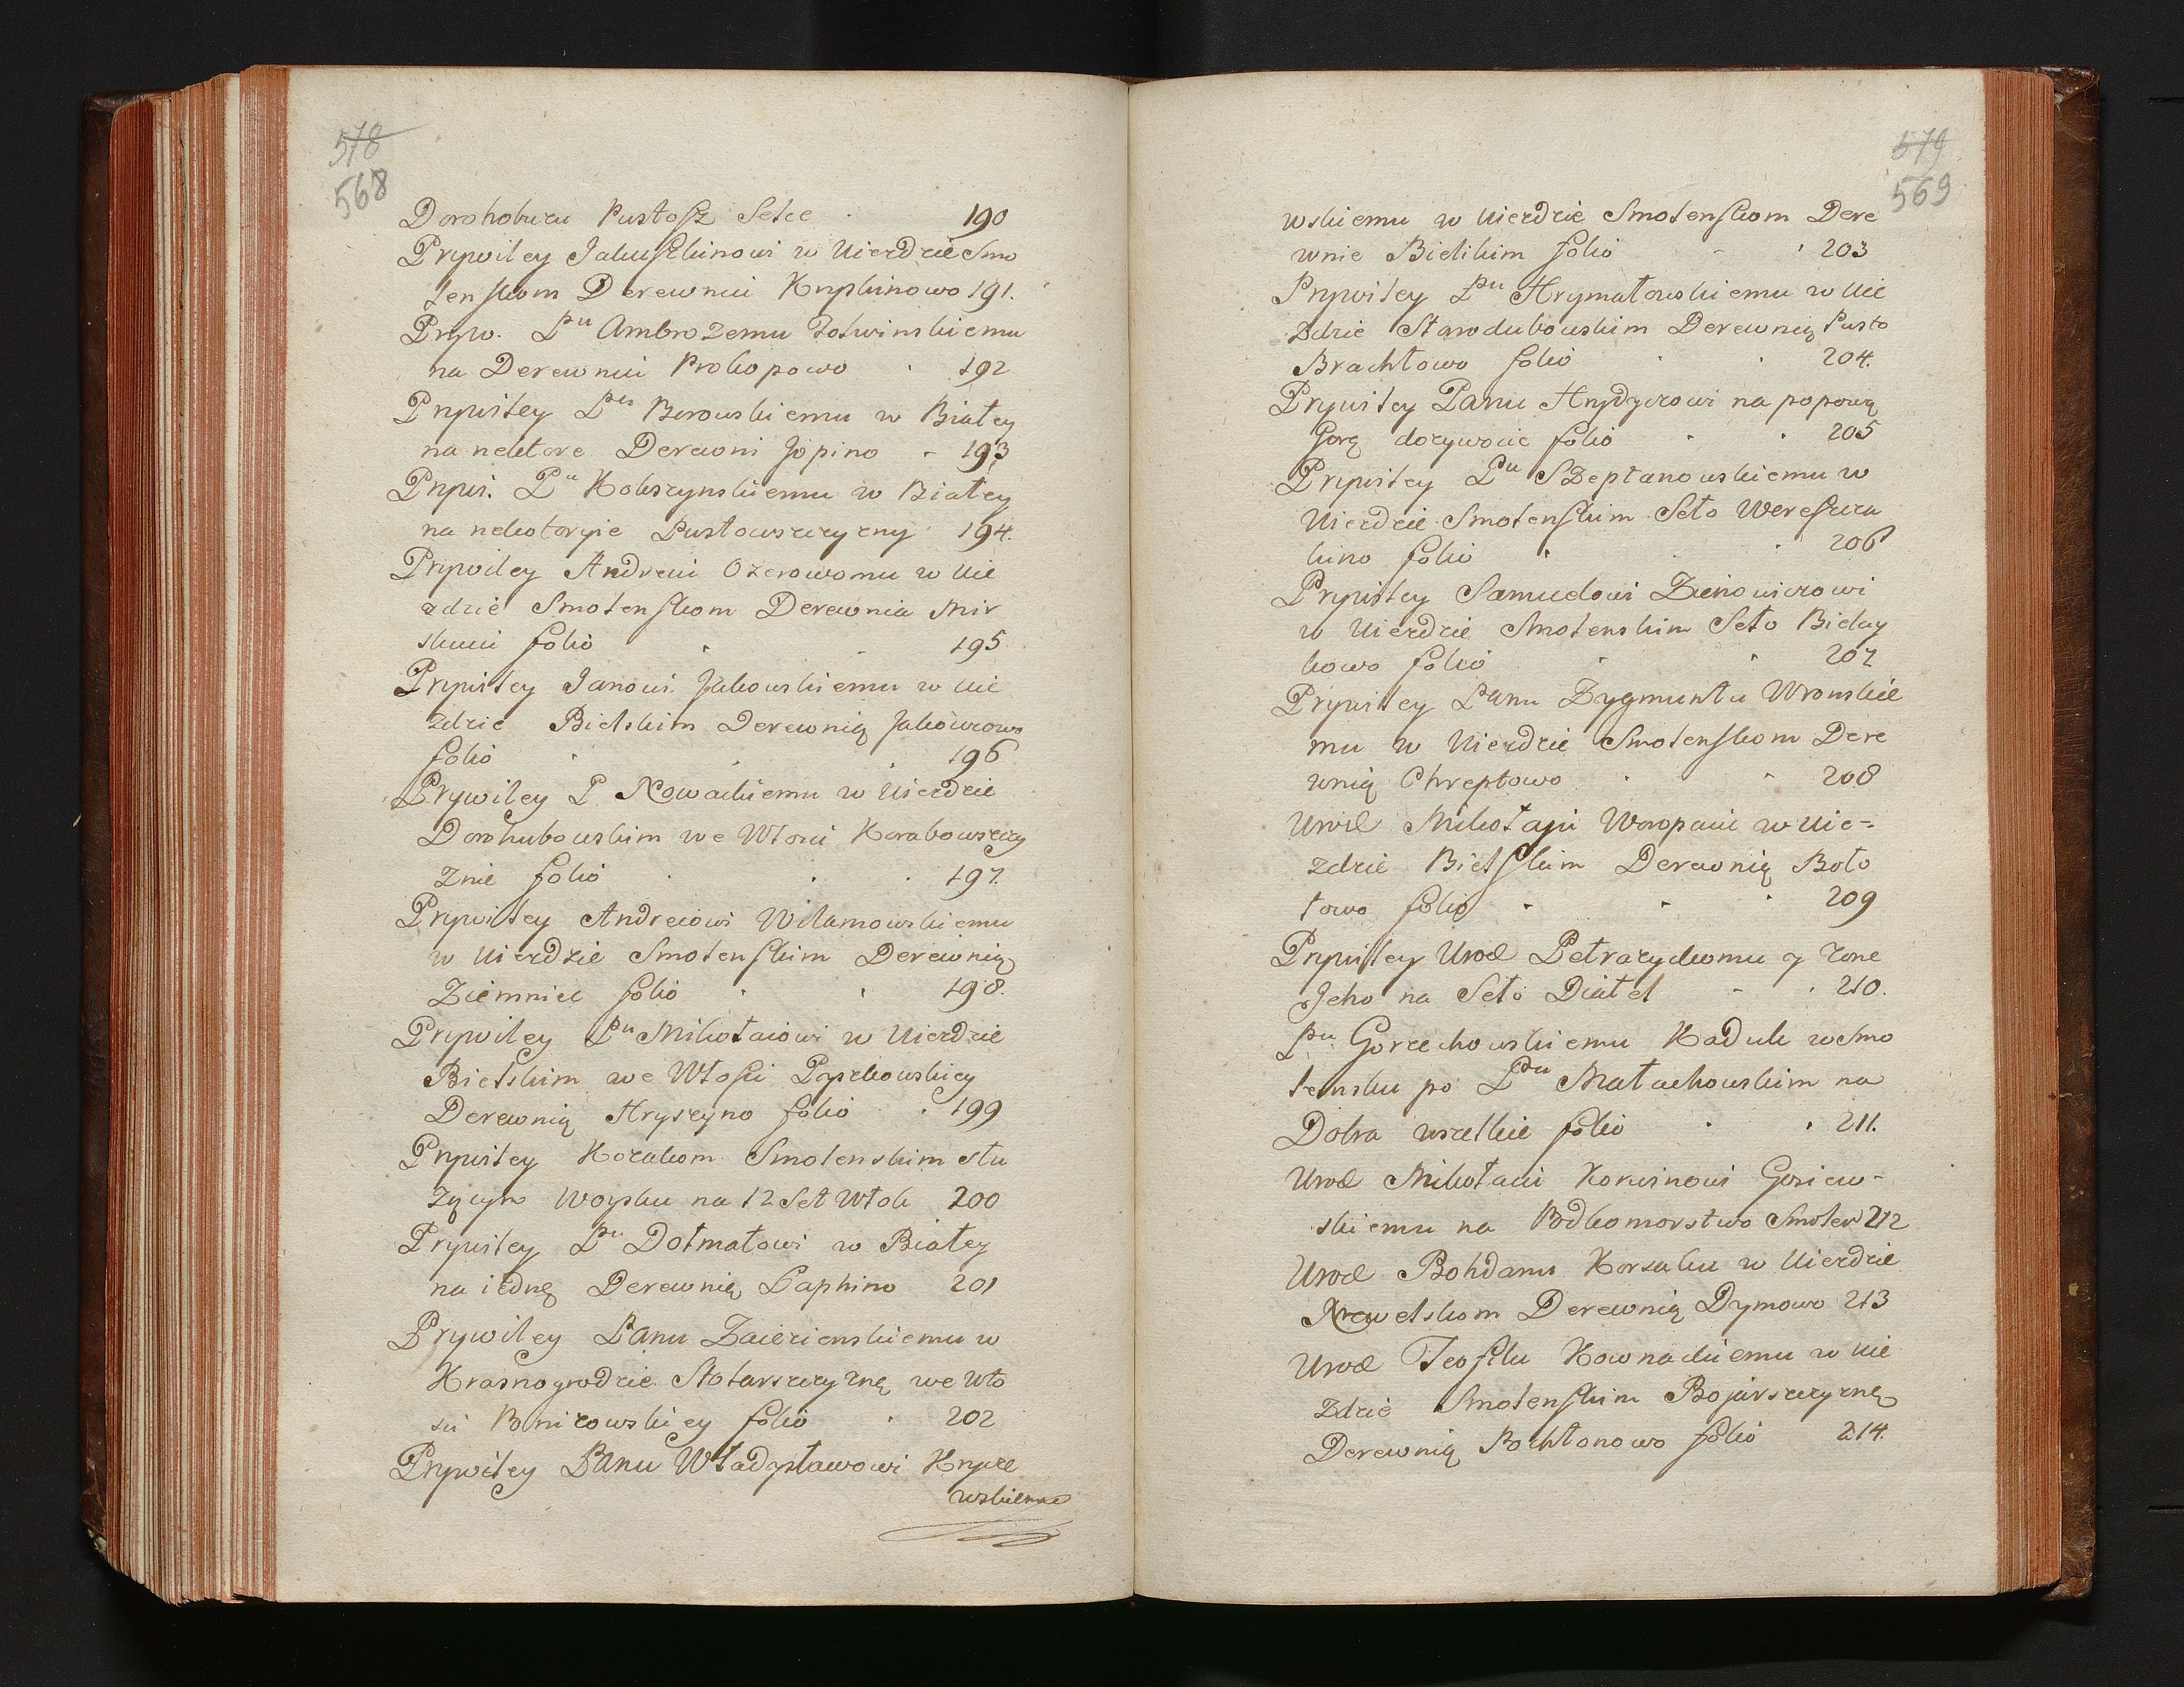 578
568
Dorohobuzu Pustosz Selce 190
Prywiley Jakuszkinowi w Uiezdzie Smo
lenskom Derewniu Krypkinowo 191.
Pryw. Pnu Ambrozemu Zolwinskiemu
na Derewniu Prokopowo 192
Prywiley Pnu Borowskiemu w Białey
na nektore Derewni Jopino - 193
Prywi. Pnu Kobszynskiemu w Białey
na nekotoryie Pustowszczyzny 194.
Prywiley Andreiu Ozerowomu w Uie
zdzie Smolenskom Derewnia Mir
skuiu folio 195
Prywiley Janowi Jakowskiemu w Uie
zdzie Bielskim Derewnią Jakowcowo
folio 196
Prywiley P Nowackiemu w Uiezdzie
Dorohubowskim we Włosci Korabowszczy
znie folio 197.
Prywiley Andreiowi Wilamowskiemu
w Uiezdzie Smolenskim Derewnią
Ziemniec folio 198.
Prywiley Pnu Mikołaiowi w Uiezdzie
Bielskim we Włosci Pyszkowskiey
Derewnią Hryszyno folio 199
Prywiley Kozakom Smolenskim słu
zącym Woysku na 12 Set Włok 200
Prywiley Pnu Dołmatowi w Białey
na iednę Derewnią Paphino 201
Prywiley Panu Zaierienskiemu w
Krasnogrodzie Stolarszczyznę we Wło
sci Bonizowskiey folio 202
Prywiley Panu Władysławowi Krycze
wskiemu
579
569
wskiemu w Uiezdzie Smolenskom Dere
wnie Bielikim folio - 203
Prywiley Pnu Hrymałowskiemu w Uie
zdzie Starodubowskim Derewnią Pusto
Brachłowo folio 204.
Prywiley Panu Hrydycowi na popową
Gorę dozywocie folio 205
Prywiley Pnu Szeptanowskiemu w
Uiezdzie Smolenskim Seło Wereszcza
kino folio 206
Prywiley Samuelowi Zienowiczowi
w Uiezdzie Smolenskim Seło Biday
kowo folio 207
Prywiley Panu Zygmuntu Wronskie
mu w Uiezdzie Smolenskom Dere
wnią Chreptowo - 208
Urod Mikołaju Woropaiu w Uie-
zdzie Bielskim Derewnią Boło
towo folio 209
Prywiley Urod Petrazyckomu y Zone
Jeho na Seło Diateł - 210.
Pnu Gorzechowskiemu Kaduk w Smo
lensku po Pnu Małachowskim na
Dobra wszelkie folio 211.
Urod Mikołaiu Korwinowi Gosiew-
skiemu na Podkomorstwo Smolen 212
Urod Bohdanu Korsaku w Uiezdzie
Newelskom Derewnią Dymowo 213
Urod Teofilu Kownackiemu w Uie
zdzie Smolenskim Bojarszczyznę
Derewnią Bochtonowo folio 214.